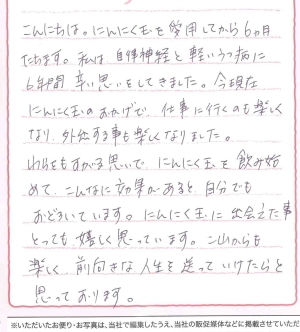 こんにちは。にんにく玉を愛用してから6ヵ月
たちます。私は、自律神経と軽いうつ病に
6年間 辛い思いをしてきました。今現在
にんにく玉のおかげで、仕事に行くのも楽しく
なり、外出する事も楽しくなりました。
わらをもすがる思いで、にんにく玉を飲み始
めて、こんなに効果があると、自分でも
おどろいています。にんにく玉に出会えた事
とっても嬉しく思っています。これからも
楽しく、前向きな人生を送っていけたらと
思っております。
※いただいたお便り・お写真は、当社で編集したうえ、当社の販促媒体などに掲載させていただ